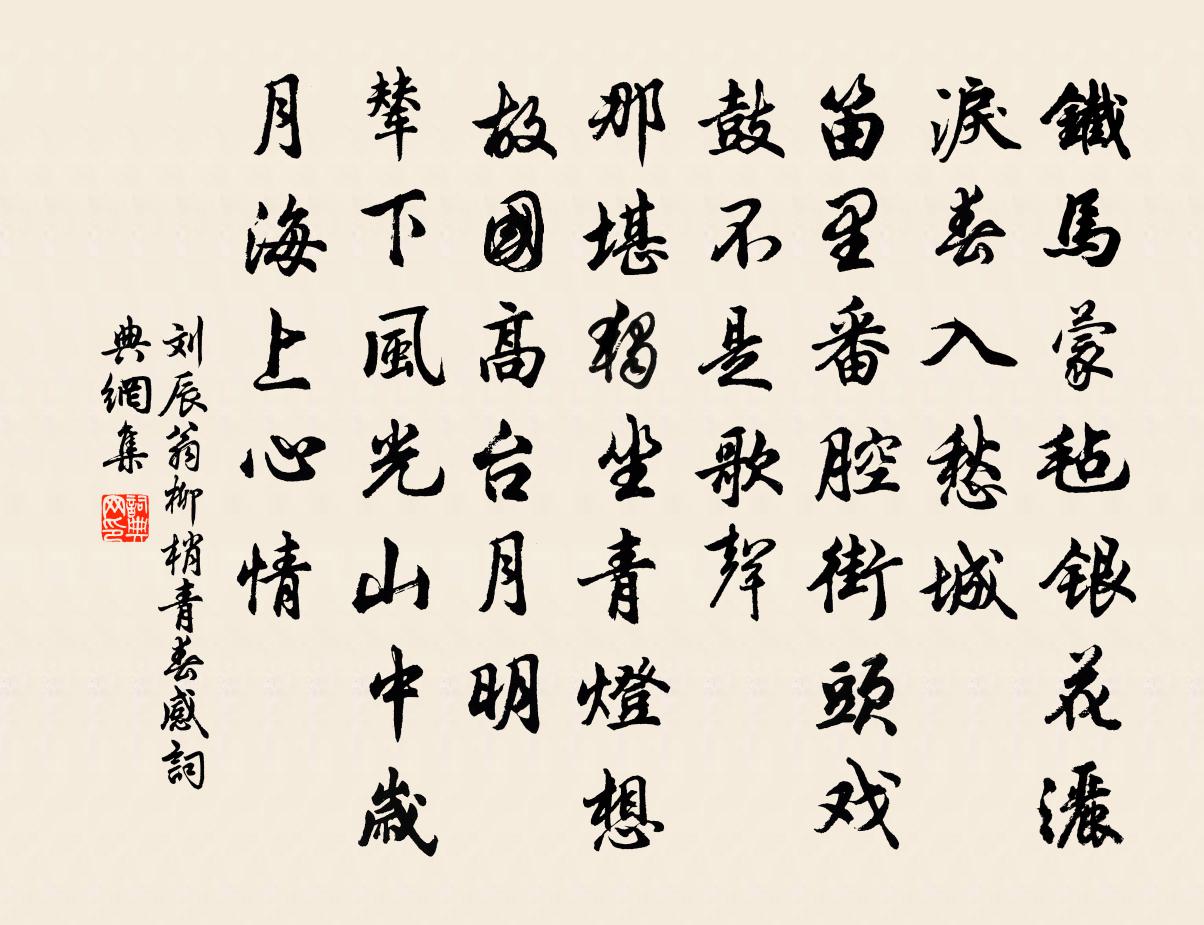 鐵馬蒙毡銀花灑
淚春入愁城
笛里番腔街頭戏
鼓不是歌聲
那堪獨坐青燈想
故國高台月明
輦下風光山中歲
月海上心情
刘辰翁柳梢青春感詞
典網集
詞典網印